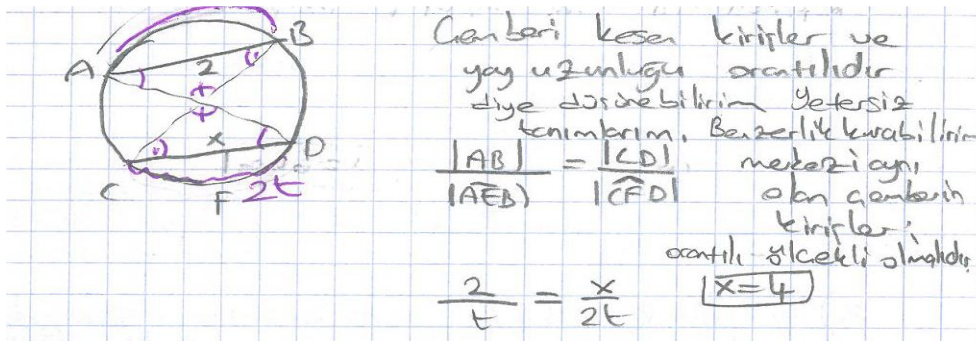 B
A
2
x
D
C
F
2t
Çemberi kesen kirişler ve
yay uzunluğu orantılıdır
diye düşünebilirim Yetersiz
tanımlarım. Benzerlik kurabilirim
|AB| / |AEB| = |CD| / |CFD|
merkezi aynı
olan çemberin
kirişler
orantılı ölçekli olmalıdır
2 / t = x / 2t
x = 4